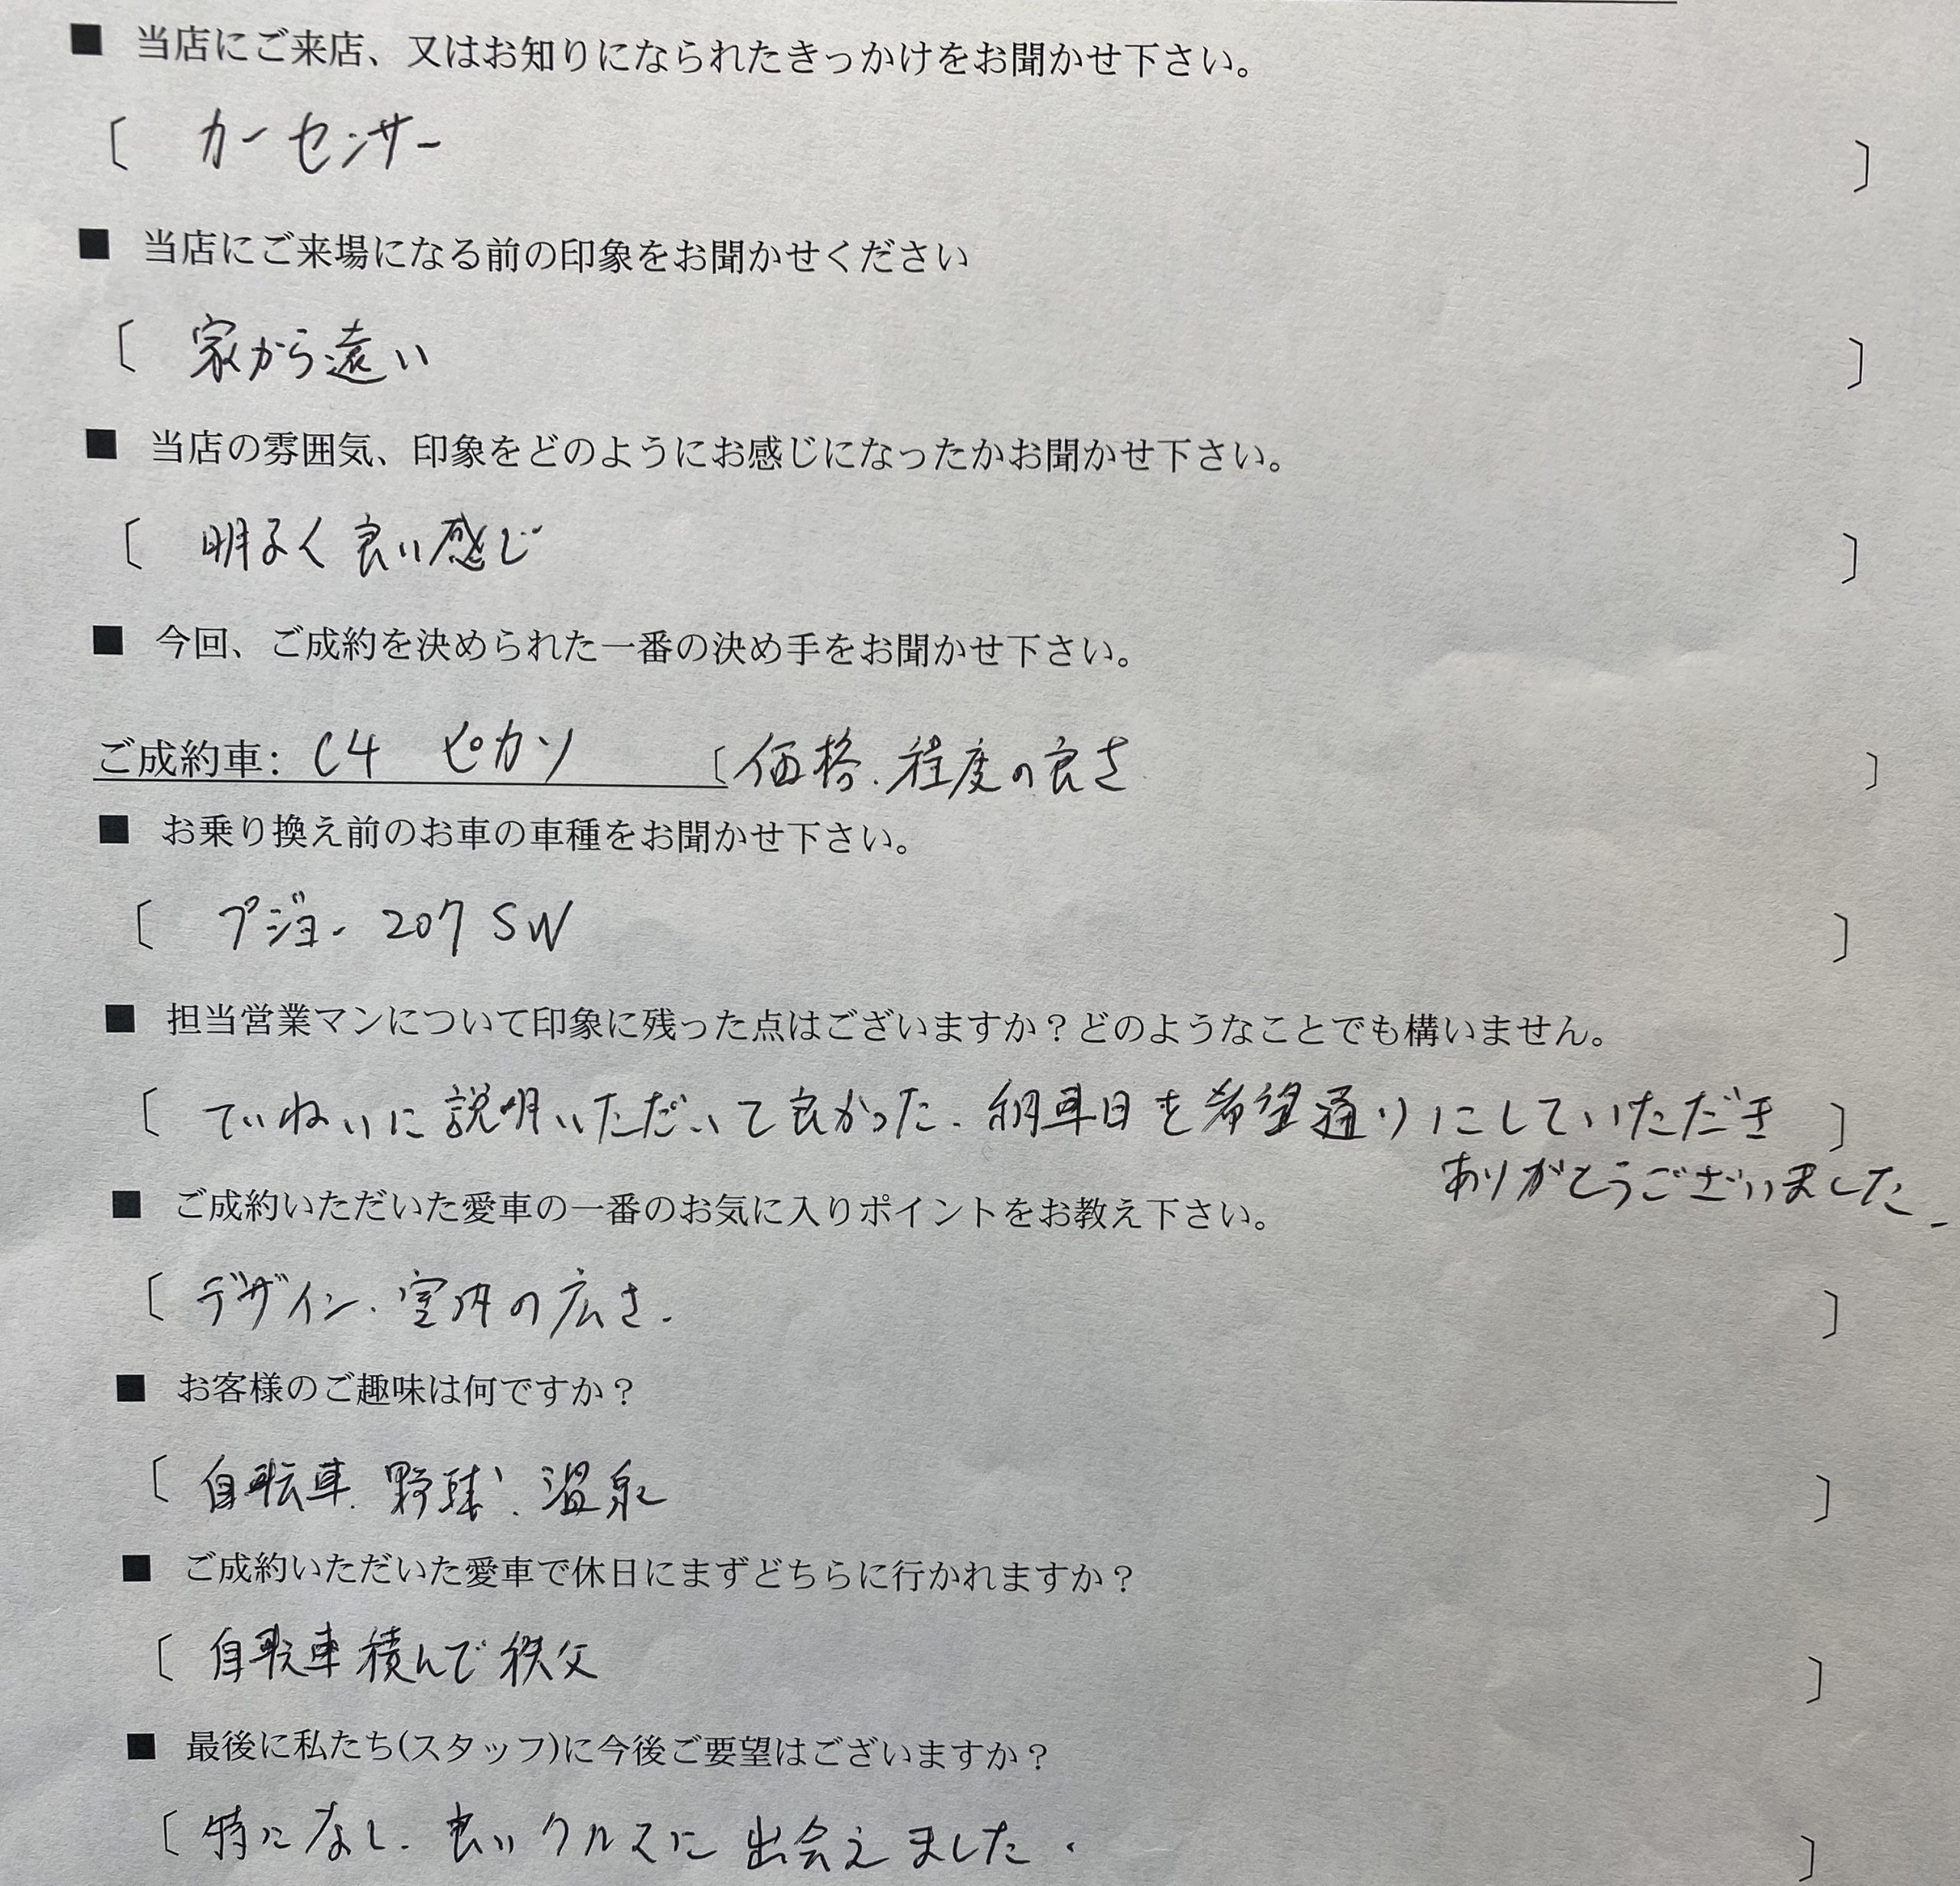 ■ 当店にご来店、又はお知りになられたきっかけをお聞かせ下さい。
〔 カーセンサー 〕
■ 当店にご来場になる前の印象をお聞かせください
〔 家から遠い 〕
■ 当店の雰囲気、印象をどのようにお感じになったかお聞かせ下さい。
〔 明るく良い感じ 〕
■ 今回、ご成約を決められた一番の決め手をお聞かせ下さい。
ご成約車: C4 ピカソ 〔価格、程度の良さ 〕
■ お乗り換え前のお車の車種をお聞かせ下さい。
〔 プジョー 207 SW 〕
■ 担当営業マンについて印象に残った点はございますか？どのようなことでも構いません。
〔 ていねいに説明いただいて良かった。納車日を希望通りにしていただき 〕
ありがとうございました。
■ ご成約いただいた愛車の一番のお気に入りポイントをお教え下さい。
〔 デザイン、室内の広さ。 〕
■ お客様のご趣味は何ですか？
〔 自転車、野球、温泉 〕
■ ご成約いただいた愛車で休日にまずどちらに行かれますか？
〔 自転車積んで秩父 〕
■ 最後に私たち(スタッフ)に今後ご要望はございますか？
〔 特になし。良いクルマに出会えました。 〕